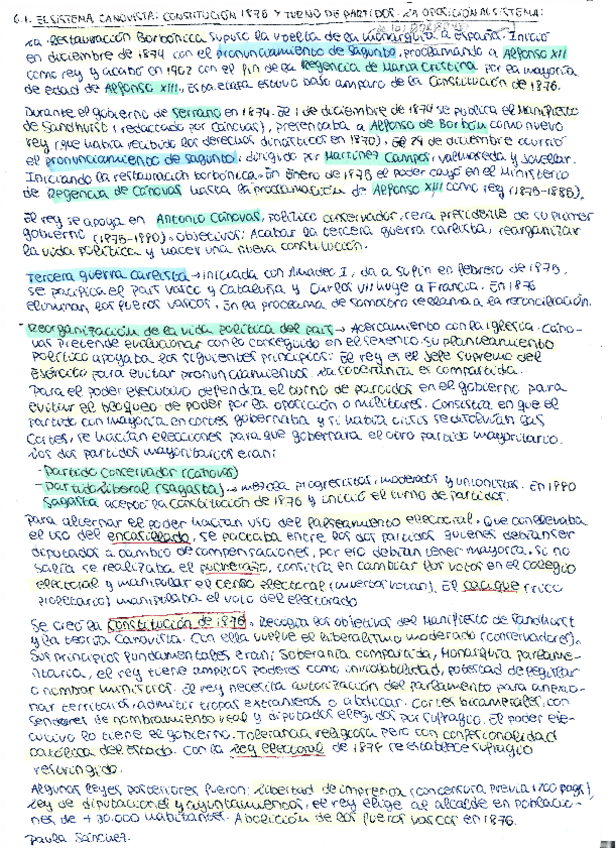 6.1. EL SISTEMA CANOVISTA: CONSTITUCIÓN 1876 Y TURNO DE PARTIDOS. LA OPOSICIÓN AL SISTEMA:
La Restauración Borbónica supuso la vuelta de la monarquía a España. Inició
en diciembre de 1874 con el pronunciamiento de Sagunto, proclamando a Alfonso XII
como rey y acabó en 1902 con el fin de la Regencia de María Cristina por la mayoría
de edad de Alfonso XIII. Esta etapa estuvo bajo amparo de la Constitución de 1876.
Durante el gobierno de Serrano en 1874. El 1 de diciembre de 1874 se publica el Manifiesto
de Sandhurst (redactado por Cánovas), presentaba a Alfonso de Borbón como nuevo
rey (que había recibido los derechos dinásticos en 1870). El 29 de diciembre ocurrió
el pronunciamiento de Sagunto, dirigido por Martínez Campos, Valmaseda y Jovellar.
Iniciando la restauración borbónica. En enero de 1875 el poder cayó en el Ministerio
de Regencia de Cánovas hasta la proclamación de Alfonso XII como rey (1875-1885).
El rey se apoya en Antonio Cánovas, político conservador, será presidente de su primer
gobierno (1875-1880). Objetivos: Acabar la tercera guerra carlista, reorganizar
la vida política y hacer una nueva constitución.
Tercera guerra carlista → iniciada con Amadeo I, da a su fin en febrero de 1876.
Se pacifica el País Vasco y Cataluña y Carlos VII huye a Francia. En 1876
eliminan los fueros vascos. En la proclama de Somorrostro se llama a la reconciliación.
- Reorganización de la vida política del país → Acercamiento con la iglesia. Cáno-
vas pretende evolucionar con lo conseguido en el sexenio. Su planteamiento
político apoyaba los siguientes principios: El rey es el jefe supremo del
Ejército para evitar pronunciamientos. La soberanía es compartida.
Para el poder ejecutivo defendía el turno de partidos en el gobierno para
evitar el bloqueo de poder por la oposición o militares. Consistía en que el
partido con mayoría en cortes gobernaba y si había crisis se disolvían las
Cortes, se hacían elecciones para que gobernara el otro partido mayoritario.
Los dos partidos mayoritarios eran:
- Partido conservador (Cánovas)
- Partido liberal (Sagasta) → mezcla progresistas, moderados y unionistas. En 1880
Sagasta aceptó la Constitución de 1876 y inició el turno de partidos.
Para alternar el poder hacían uso del falseamiento electoral. Que conllevaba
el uso del encasillado, se pactaba entre los dos partidos quienes debían ser
diputados a cambio de compensaciones, por eso debían tener mayoría. Si no
salía se realizaba el pucherazo, consistía en cambiar los votos en el colegio
electoral y manipular el censo electoral (muertos votan). El cacique (rico
propietario) manipulaba el voto del electorado
Se creó la Constitución de 1876. Recogía los objetivos del Manifiesto de Sandhurst
y la teoría Canovista. Con ella vuelve el liberalismo moderado (conservadores).
Sus principios fundamentales eran: Soberanía compartida, Monarquía parlamen-
taria, el rey tiene amplios poderes como inviolabilidad, potestad de legislar
o nombrar ministros. El rey necesita autorización del parlamento para anexio-
nar territorios, admitir tropas extranjeras o abdicar. Cortes bicamerales, con
senadores de nombramiento real y diputados elegidos por sufragio. El poder eje-
cutivo lo tiene el gobierno. Tolerancia religiosa pero con confesionalidad
católica del Estado. Con la ley electoral de 1878 se establece sufragio
restringido.
Algunas leyes posteriores fueron: libertad de imprenta (con censura previa 1200 pags)
Ley de diputaciones y ayuntamientos, el rey elige al alcalde en poblacio-
nes de + 30.000 habitantes. Abolición de los fueros vascos en 1876.
Paula Sánchez.